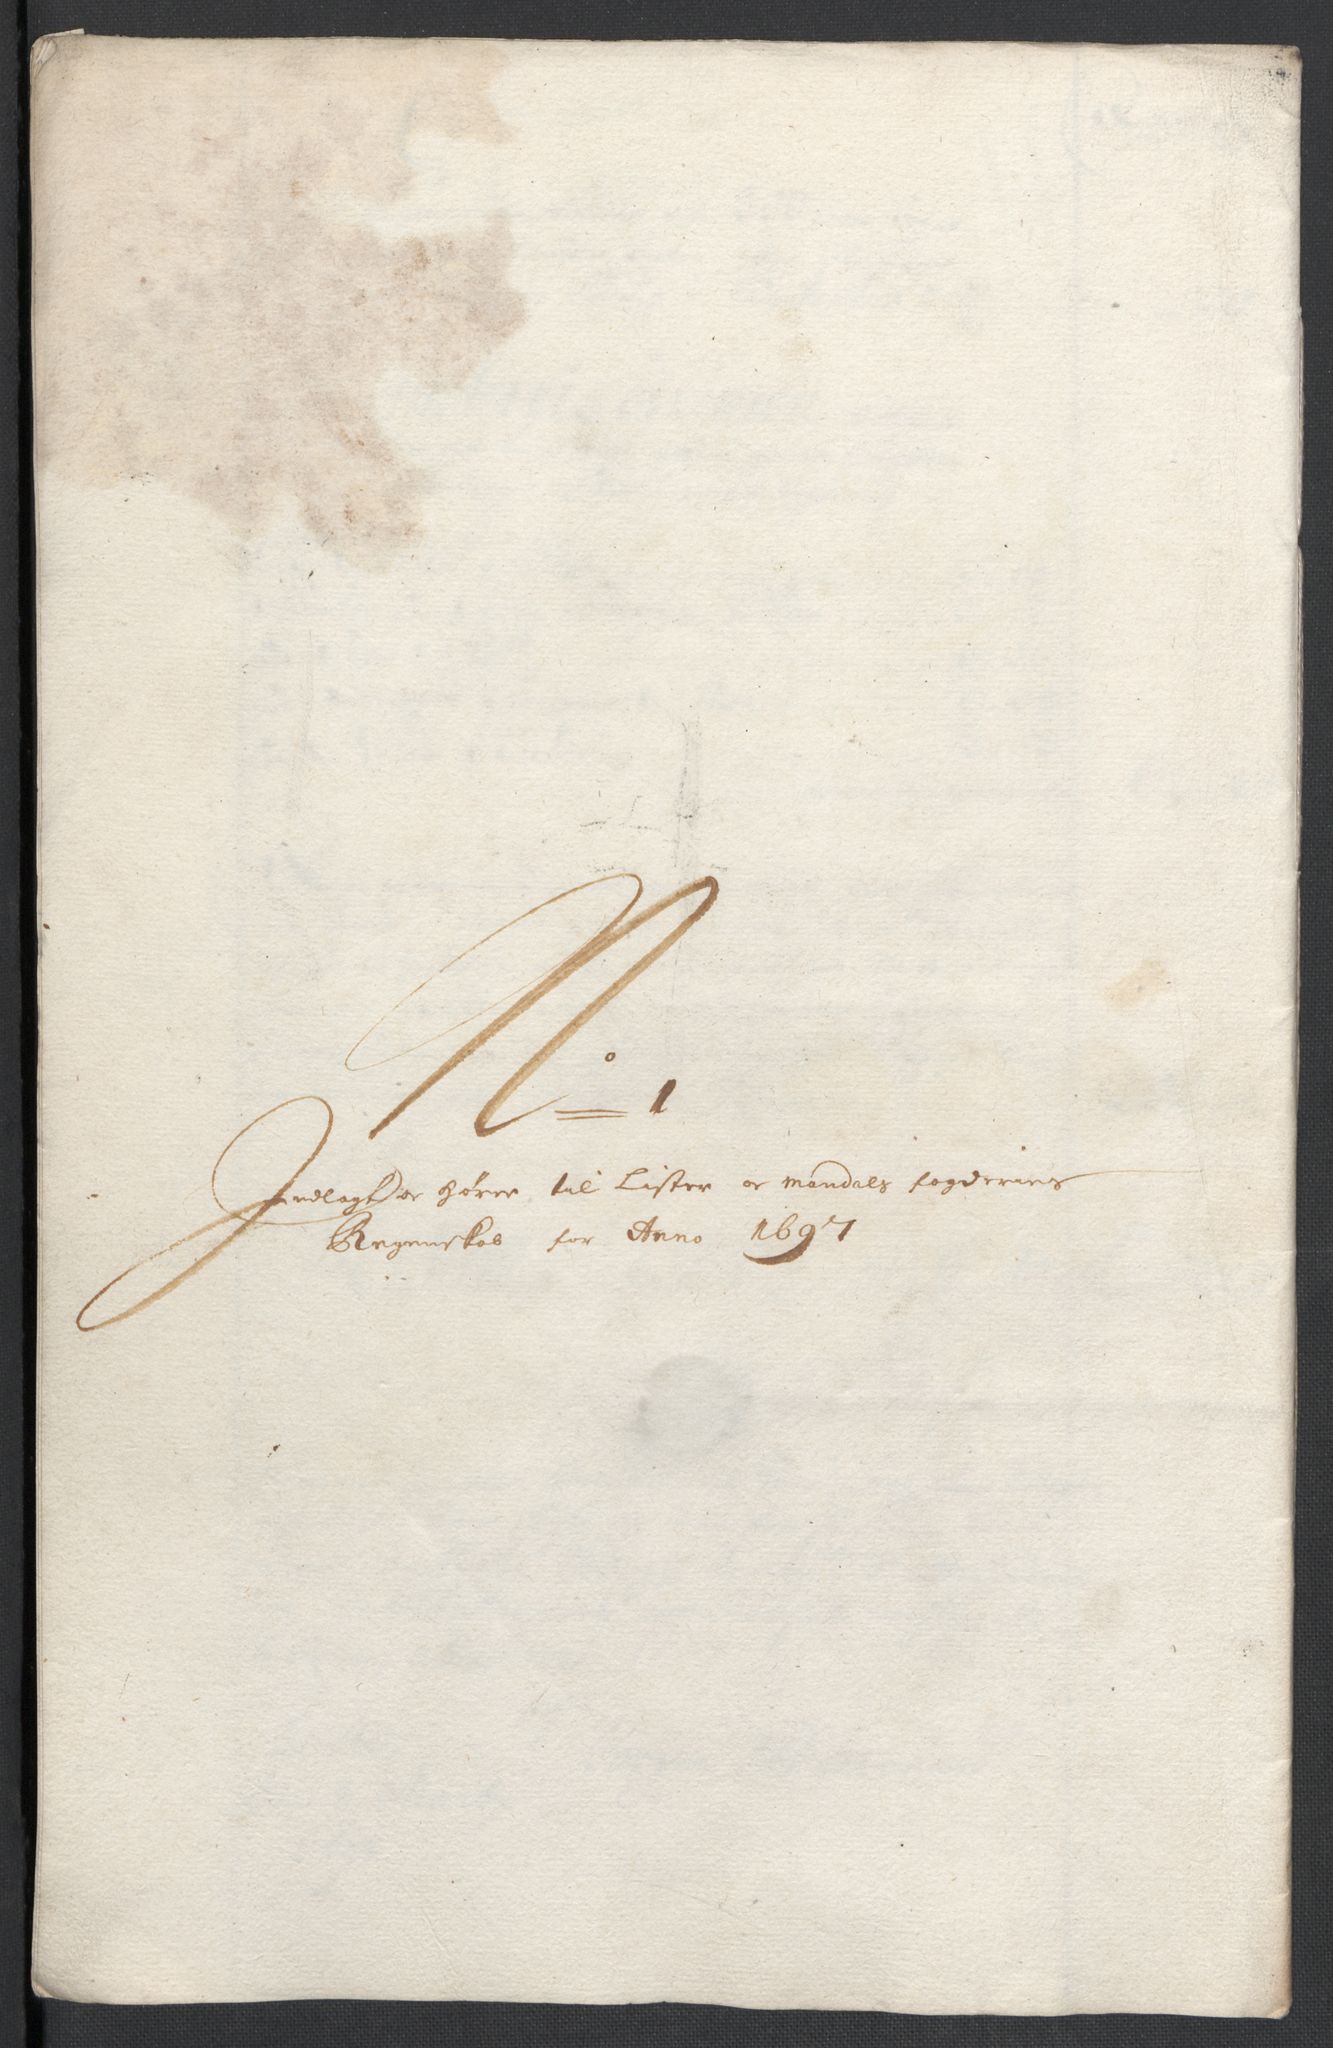 No 1
Indlagt oc hörer til Lister oc Mandals fogderiers
Regenskab for Anno 1697